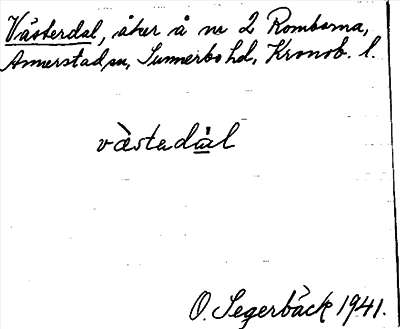 Västerdal, åker å nr 2 Romborna,
Annerstad sn, Sunnerbo hd, Kronob. l.
västadål
O. Segerbäck 1941.